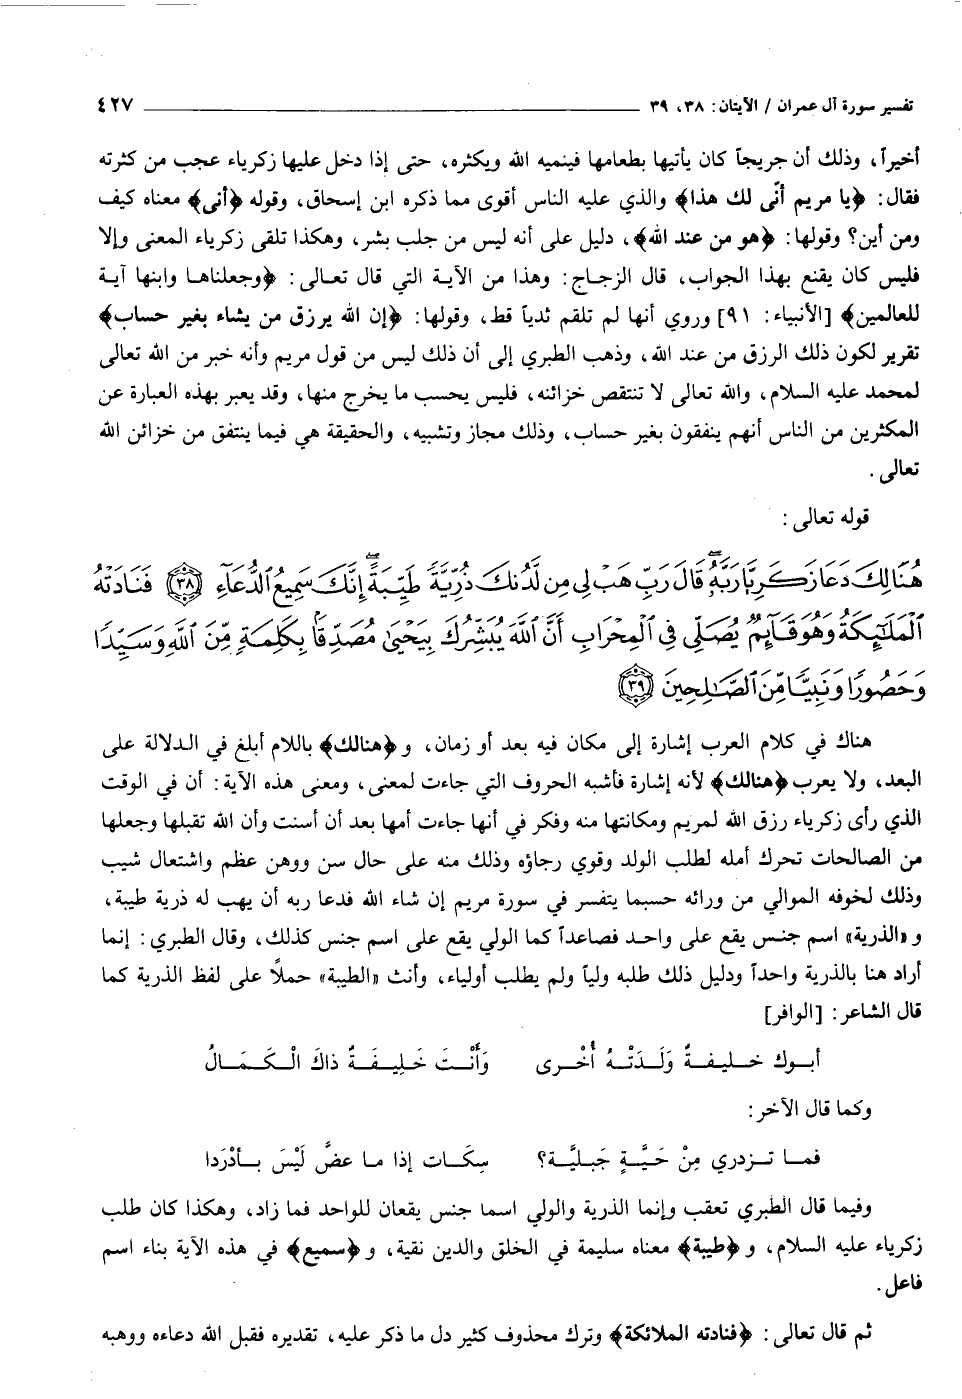 تفسير سورة آل عمران / الآيتان: ٣٨، ٣٩ ٤٢٧
أخيراً، وذلك أن جريجاً كان يأتيها بطعامها فينميه الله ويكثره، حتى إذا دخل عليها زكرياء عجب من كثرته
فقال: ﴿يا مريم أنّى لك هذا﴾ والذي عليه الناس أقوى مما ذكره ابن إسحاق، وقوله ﴿أنى﴾ معناه كيف
ومن أين؟ وقولها: ﴿هو من عند الله﴾، دليل على أنه ليس من جلب بشر، وهكذا تلقى زكرياء المعنى وإلا
فليس كان يقنع بهذا الجواب، قال الزجاج: وهذا من الآية التي قال تعالى: ﴿وجعلناها وابنها آية
للعالمين﴾ [الأنبياء: ٩١] وروي أنها لم تلقم ثدياً قط، وقولها: ﴿إن الله يرزق من يشاء بغير حساب﴾
تقرير لكون ذلك الرزق من عند الله، وذهب الطبري إلى أن ذلك ليس من قول مريم وأنه خبر من الله تعالى
لمحمد عليه السلام، والله تعالى لا تنتقص خزائنه، فليس يحسب ما يخرج منها، وقد يعبر بهذه العبارة عن
المكثرين من الناس أنهم ينفقون بغير حساب، وذلك مجاز وتشبيه، والحقيقة هي فيما ينتفق من خزائن الله
تعالى.
قوله تعالى:
هُنَالِكَ دَعَا زَكَرِيَّا رَبَّهُۥۖ قَالَ رَبِّ هَبْ لِى مِن لَّدُنكَ ذُرِّيَّةً طَيِّبَةًۖ إِنَّكَ سَمِيعُ ٱلدُّعَآءِ ﴿٣٨﴾ فَنَادَتْهُ
ٱلْمَلَٰٓئِكَةُ وَهُوَ قَآئِمٌ يُصَلِّى فِى ٱلْمِحْرَابِ أَنَّ ٱللَّهَ يُبَشِّرُكَ بِيَحْيَىٰ مُصَدِّقًۢا بِكَلِمَةٍ مِّنَ ٱللَّهِ وَسَيِّدًا
وَحَصُورًا وَنَبِيًّا مِّنَ ٱلصَّٰلِحِينَ ﴿٣٩﴾
هناك في كلام العرب إشارة إلى مكان فيه بعد أو زمان، و﴿هنالك﴾ باللام أبلغ في الدلالة على
البعد، ولا يعرب ﴿هنالك﴾ لأنه إشارة فأشبه الحروف التي جاءت لمعنى، ومعنى هذه الآية: أن في الوقت
الذي رأى زكرياء رزق الله لمريم ومكانتها منه وفكر في أنها جاءت أمها بعد أن أسنت وأن الله تقبلها وجعلها
من الصالحات تحرك أمله لطلب الولد وقوي رجاؤه وذلك منه على حال سن ووهن عظم واشتعال شيب
وذلك لخوفه الموالي من ورائه حسبما يتفسر في سورة مريم إن شاء الله فدعا ربه أن يهب له ذرية طيبة،
و«الذرية» اسم جنس يقع على واحد فصاعداً كما الولي يقع على اسم جنس كذلك، وقال الطبري: إنما
أراد هنا بالذرية واحداً ودليل ذلك طلبه ولياً ولم يطلب أولياء، وأنث «الطيبة» حملاً على لفظ الذرية كما
قال الشاعر: [الوافر]
أبوك خليفةٌ وَلَدَتْهُ أُخْرى وَأَنْتَ خَلِيفَةٌ ذاكَ الْكَمَالُ
وكما قال الآخر:
فما تزدري مِنْ حَيَّةٍ جَبليَّة؟ سِكَات إذا ما عضَّ لَيْسَ بأدْرَدا
وفيما قال الطبري تعقب وإنما الذرية والولي اسما جنس يقعان للواحد فما زاد، وهكذا كان طلب
زكرياء عليه السلام، و﴿طيبة﴾ معناه سليمة في الخلق والدين نقية، و﴿سميع﴾ في هذه الآية بناء اسم
فاعل.
ثم قال تعالى: ﴿فنادته الملائكة﴾ وترك محذوف كثير دل ما ذكر عليه، تقديره فقبل الله دعاءه ووهبه